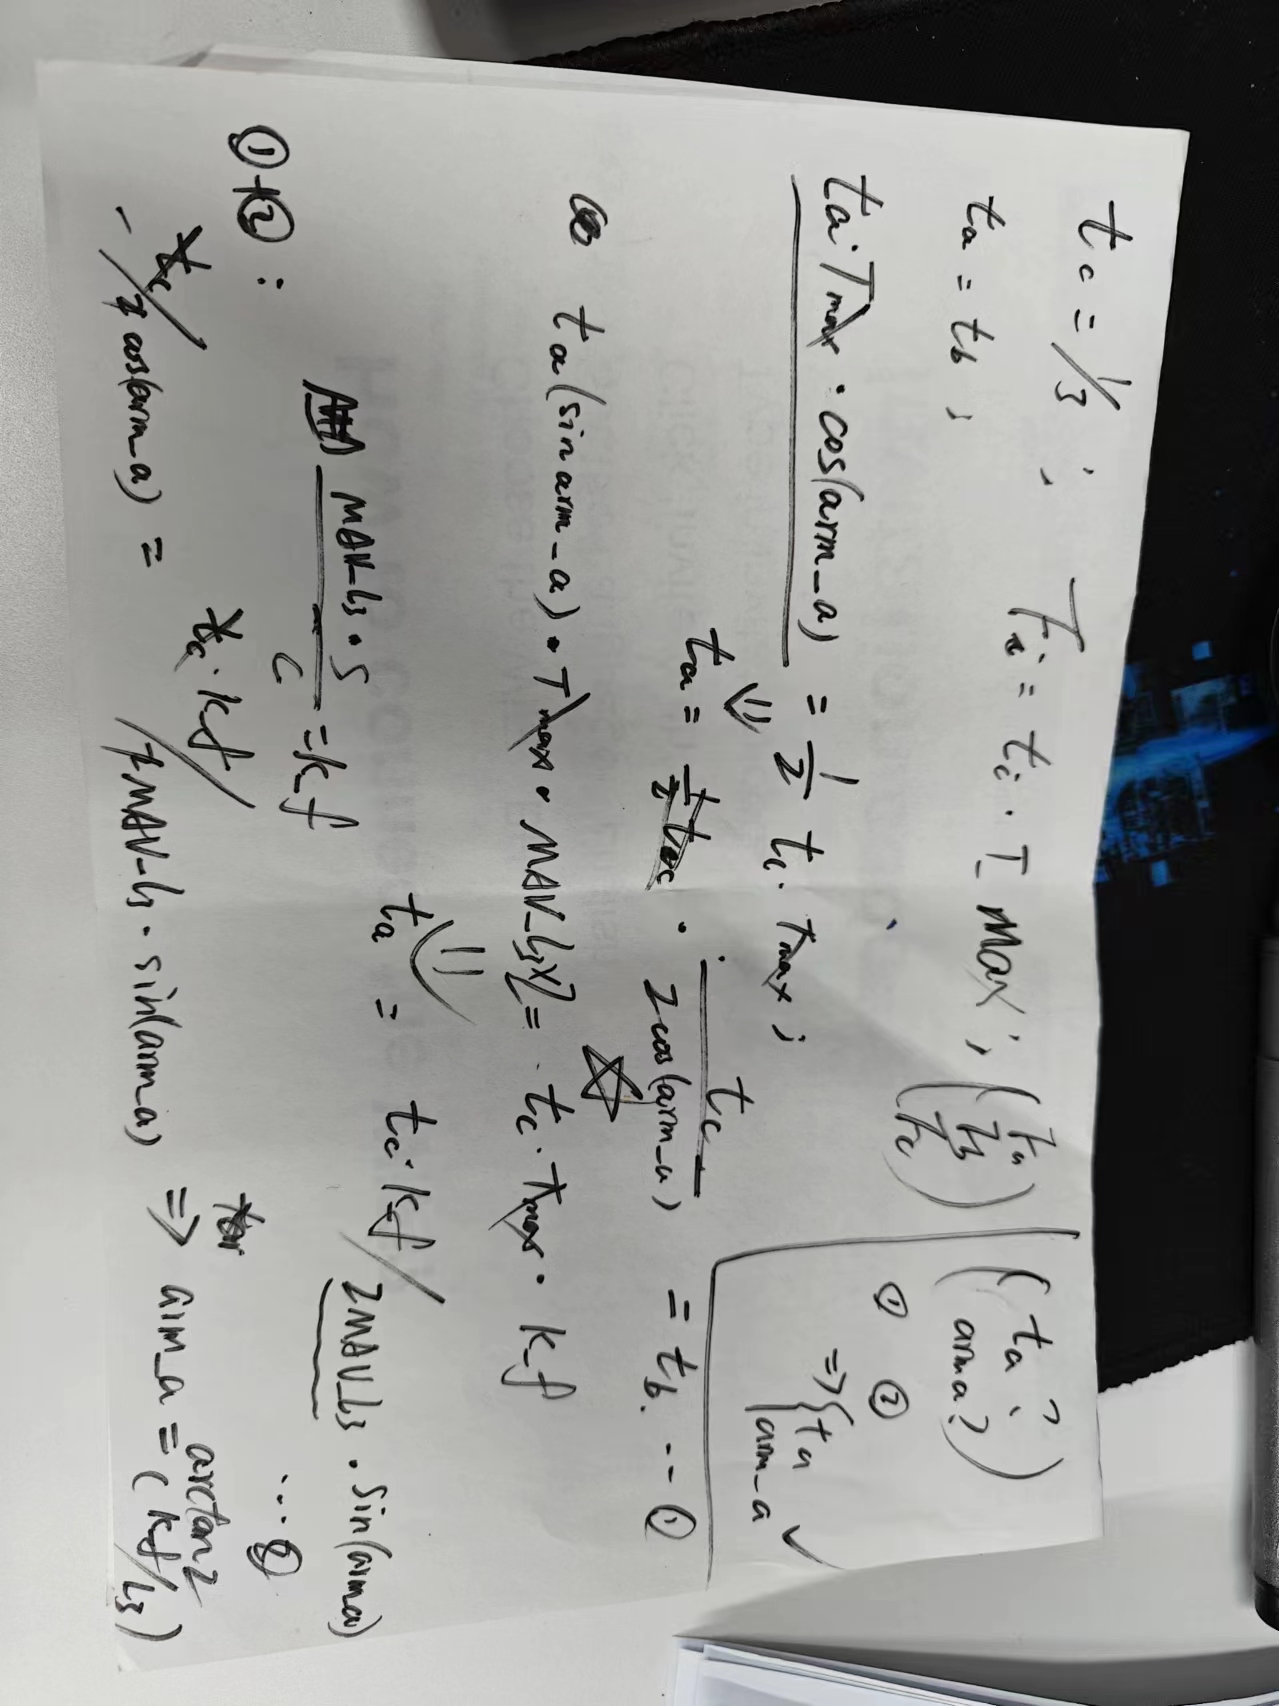 t_c = 1/3 ; F_i = t_i · T_max ; (F_a F_b F_c)
t_a = t_b ;
(t_a ? arm a ?)
① ②
=> { t_a arm_a ✓
t_a · T_max · cos(arm_a) = 1/2 t_c · T_max ;
⇓
t_a = · t_c / 2cos(arm_a) = t_b. -- ①
☆
t_a (sin arm_a) · T_max · MAV_L3 X2 = t_c · T_max · k_f
⇓
t_a = t_c · k_f / 2MAV_L3 · sin(arm_a)
... ②
MAV_L3 · S / C = k_f
①+②:
t_c / 2 cos(arm_a) = t_c · k_f / 2 MAV_L3 · sin(arm_a) => arm_a = arctan2 (k_f / L3)